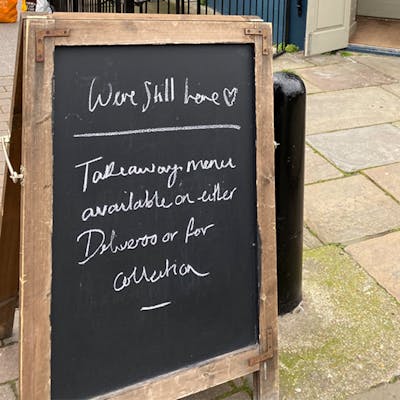 We're still here ♡
Takeaway menu
available on either
Deliveroo or for
collection